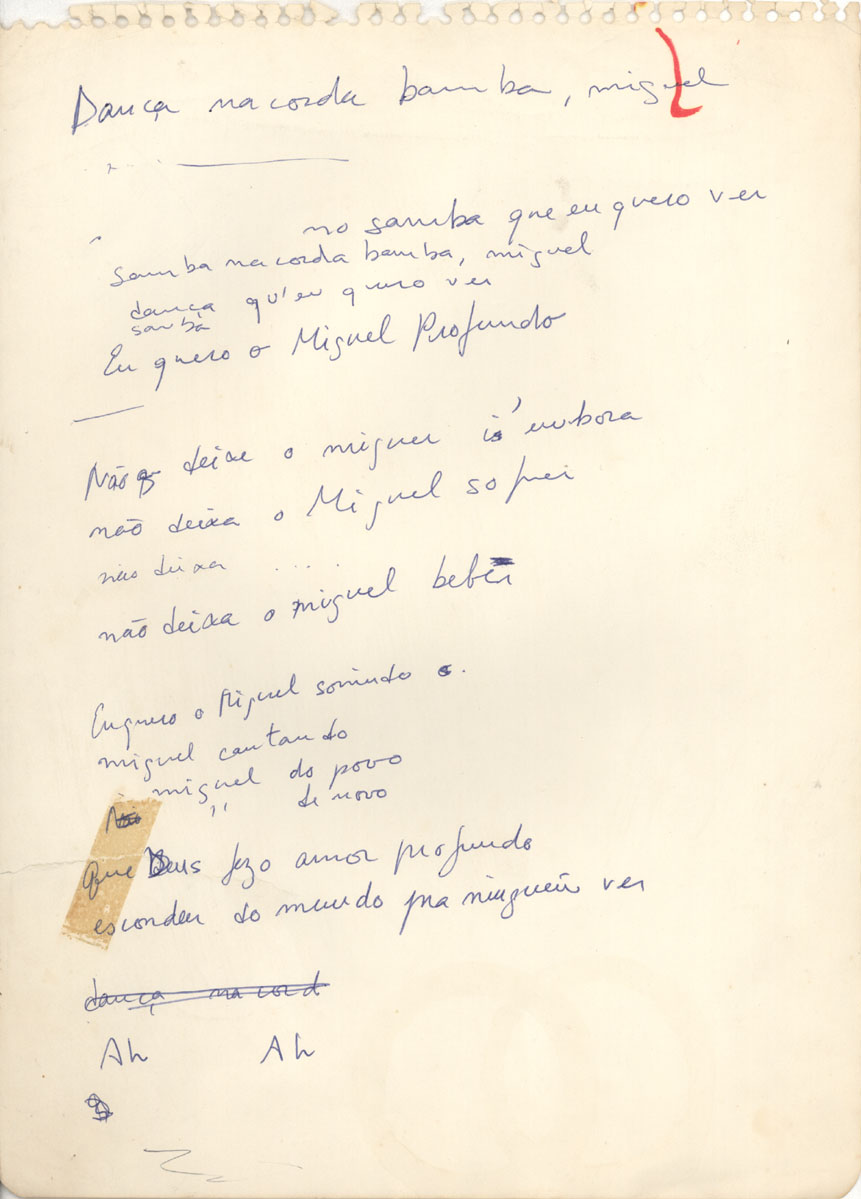 Dança na corda bamba, miguel
no samba que eu quero ver
Samba na corda bamba, miguel
dança qu'eu quero ver
samba
Eu quero o Miguel Profundo
Não deixe o miguel i' embora
não deixa o Miguel sofrei
não deixa ....
não deixa o miguel beber
Eu quero o Miguel sorrindo
miguel cantando
miguel do povo
" de novo
Que Deus fez o amor profundo
esconder do mundo pra ninguém ver
dança na cord
Ah Ah